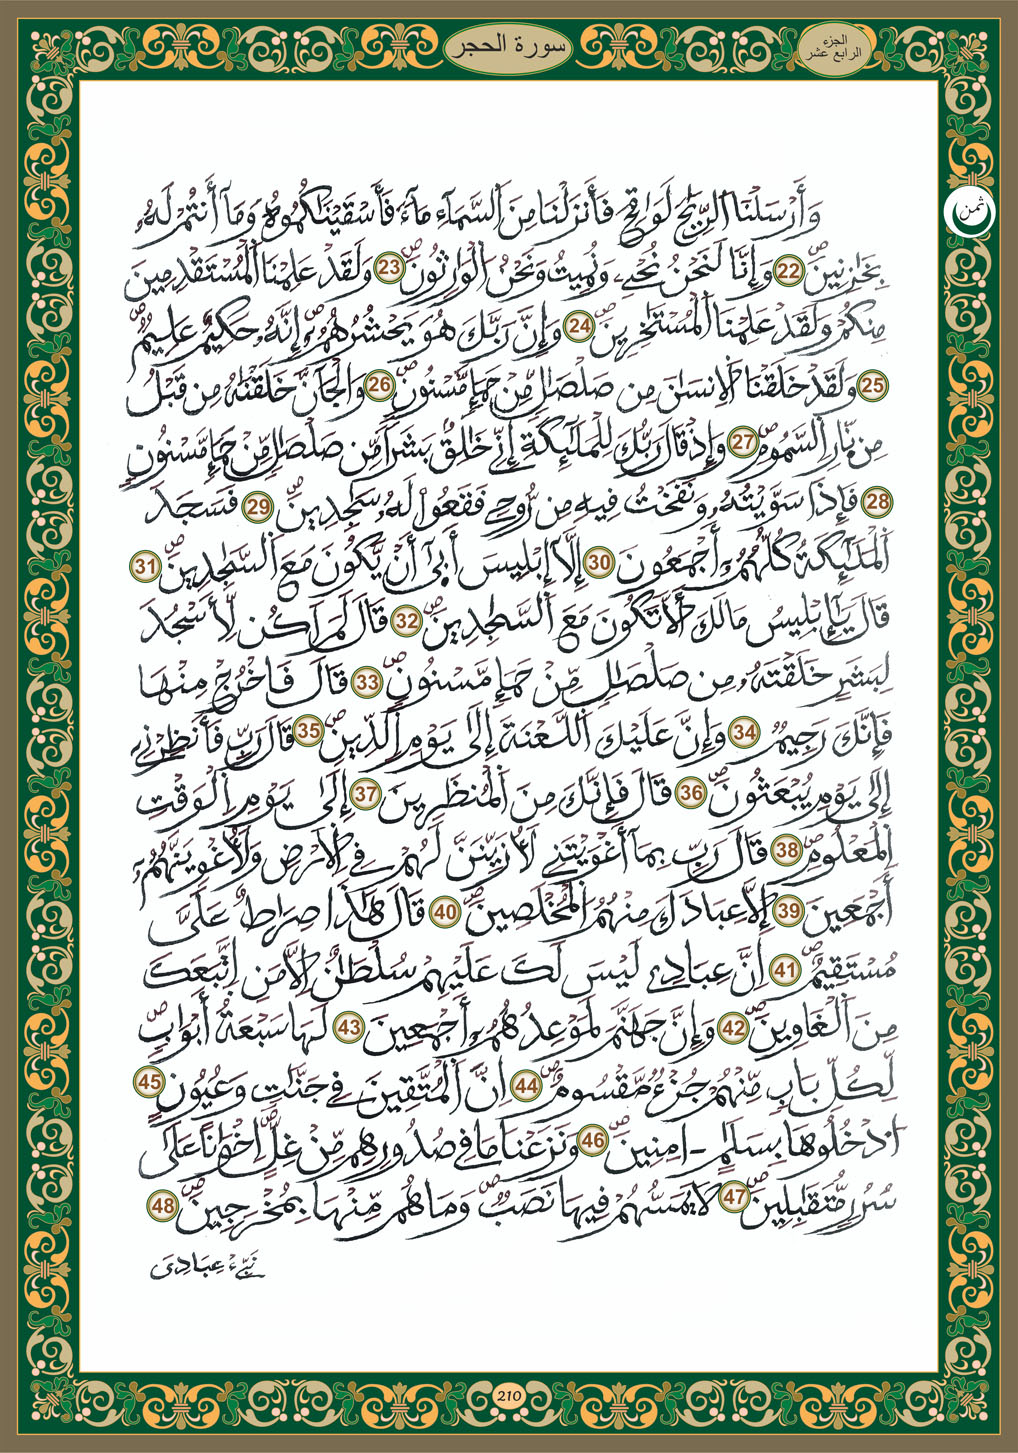 سورة الحجر
الجزء
الرابع عشر
ثمن
وَأَرْسَلْنَا اَ۬لرِّيَٰحَ لَوَٰقِحَ فَأَنزَلْنَا مِنَ اَ۬لسَّمَآءِ مَآءٗ فَأَسْقَيْنَٰكُمُوهُ وَمَآ أَنتُمْ لَهُۥ
بِخَٰزِنِينَۖ 22 وَإِنَّا لَنَحْنُ نُحْيِۦ وَنُمِيتُ وَنَحْنُ اُ۬لْوَٰرِثُونَۖ 23 وَلَقَدْ عَلِمْنَا اَ۬لْمُسْتَقْدِمِينَ
مِنكُمْ وَلَقَدْ عَلِمْنَا اَ۬لْمُسْتَٰخِرِينَۖ 24 وَإِنَّ رَبَّكَ هُوَ يَحْشُرُهُمُۥٓۖ إِنَّهُۥ حَكِيمٌ عَلِيمٞۖ
25 وَلَقَدْ خَلَقْنَا اَ۬لِانسَٰنَ مِن صَلْصَٰلٖ مِّنْ حَمَإٖ مَّسْنُونٖۖ 26 وَالْجَآنَّ خَلَقْنَٰهُ مِن قَبْلُ
مِن نَّارِ اِ۬لسَّمُومِۖ 27 وَإِذْ قَالَ رَبُّكَ لِلْمَلَٰٓئِكَةِ إِنِّے خَٰلِقُۢ بَشَراٗ مِّن صَلْصَٰلٖ مِّنْ حَمَإٖ مَّسْنُونٖ
28 فَإِذَا سَوَّيْتُهُۥ وَنَفَخْتُ فِيهِ مِن رُّوحِے فَقَعُواْ لَهُۥ سَٰجِدِينَۖ 29 فَسَجَدَ
اَ۬لْمَلَٰٓئِكَةُ كُلُّهُمُۥٓ أَجْمَعُونَ 30 إِلَّآ إِبْلِيسَ أَب۪يٰٓ أَنْ يَّكُونَ مَعَ اَ۬لسَّٰجِدِينَۖ 31
قَالَ يَٰٓإِبْلِيسُ مَالَكَ أَلَّا تَكُونَ مَعَ اَ۬لسَّٰجِدِينَۖ 32 قَالَ لَمَ اَكُن لِّأَسْجُدَ
لِبَشَرٍ خَلَقْتَهُۥ مِن صَلْصَٰلٖ مِّنْ حَمَإٖ مَّسْنُونٖۖ 33 قَالَ فَاخْرُجْ مِنْهَا
فَإِنَّكَ رَجِيمٞ 34 وَإِنَّ عَلَيْكَ اَ۬للَّعْنَةَ إِلَىٰ يَوْمِ اِ۬لدِّينِۖ 35 قَالَ رَبِّ فَأَنظِرْنِےٓ
إِلَىٰ يَوْمِ يُبْعَثُونَۖ 36 قَالَ فَإِنَّكَ مِنَ اَ۬لْمُنظَرِينَ 37 إِلَىٰ يَوْمِ اِ۬لْوَقْتِ
اِ۬لْمَعْلُومِۖ 38 قَالَ رَبِّ بِمَآ أَغْوَيْتَنِے لَأُزَيِّنَنَّ لَهُمْ فِے اِ۬لَارْضِ وَلَأُغْوِيَنَّهُمُۥٓ
أَجْمَعِينَ 39 إِلَّا عِبَادَكَ مِنْهُمُ اُ۬لْمُخْلَصِينَۖ 40 قَالَ هَٰذَا صِرَٰطٌ عَلَيَّ
مُسْتَقِيمٌۖ 41 اِنَّ عِبَادِے لَيْسَ لَكَ عَلَيْهِمْ سُلْطَٰنٌ اِلَّا مَنِ اِ۪تَّبَعَكَ
مِنَ اَ۬لْغَاوِينَۖ 42 وَإِنَّ جَهَنَّمَ لَمَوْعِدُهُمُۥٓ أَجْمَعِينَ 43 لَهَا سَبْعَةُ أَبْوَٰبٖۖ
لِّكُلِّ بَابٖ مِّنْهُمْ جُزْءٞ مَّقْسُومٌۖ 44 اِنَّ اَ۬لْمُتَّقِينَ فِے جَنَّٰتٖ وَعُيُونٍۖ 45
اُ۟دْخُلُوهَا بِسَلَٰمٍ ـ اٰمِنِينَۖ 46 وَنَزَعْنَا مَا فِے صُدُورِهِم مِّنْ غِلٍّۖ اِخْوَٰناً عَلَىٰ
سُرُرٖ مُّتَقَٰبِلِينَۖ 47 لَا يَمَسُّهُمْ فِيهَا نَصَبٞۖ وَمَا هُم مِّنْهَا بِمُخْرَجِينَۖ 48
نَبِّۓْ عِبَادِيَ
210